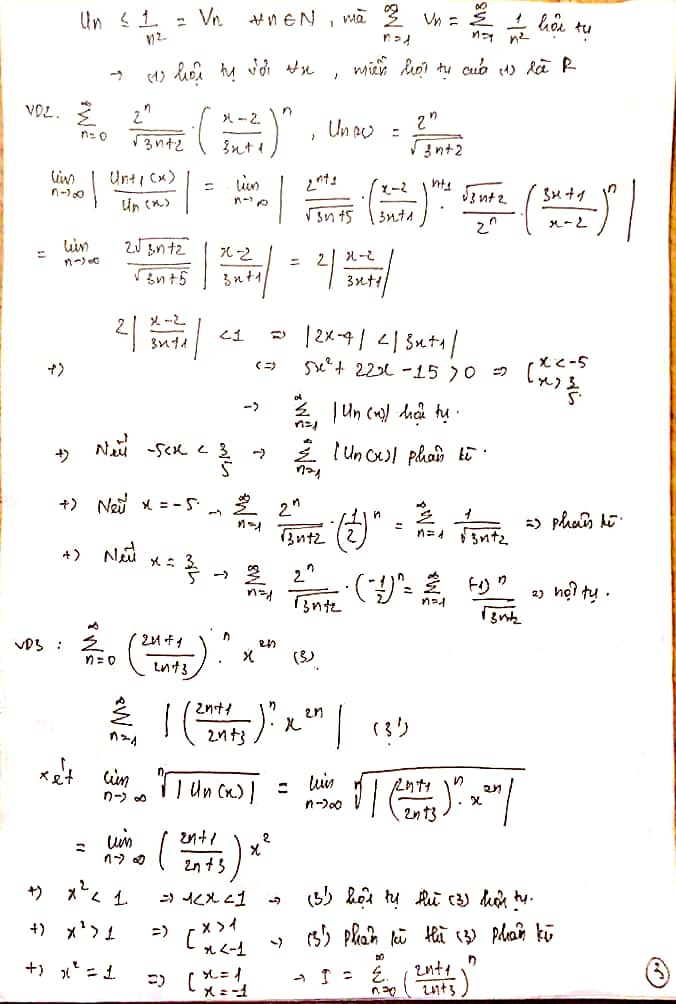 Un ≤ 1/n² = Vn ∀n∈N, mà ∑_{n=1}^∞ Vn = ∑_{n=1}^∞ 1/n² hội tụ
→ (1) hội tụ với ∀x, miền hội tụ của (1) là R
VD2. ∑_{n=0}^∞ 2^n/√(3n+2) · ((x-2)/(3x+1))^n, Un(x) = 2^n/√(3n+2)
lim_{n→∞} |Un+1(x)/Un(x)| = lim_{n→∞} |2^{n+1}/√(3n+5) · ((x-2)/(3x+1))^{n+1} · √(3n+2)/2^n · ((3x+1)/(x-2))^n|
= lim_{n→∞} 2√(3n+2)/√(3n+5) |(x-2)/(3x+1)| = 2|(x-2)/(3x+1)|
2|(x-2)/(3x+1)| <1 => |2x-4| < |3x+1|
+) (=) 5x² + 22x -15 > 0 => [x<-5 x>3/5.
→ ∑_{n=1}^∞ |Un(x)| hội tụ.
+) Nếu -5<x < 3/5 → ∑_{n=1}^∞ |Un(x)| phân kì.
+) Nếu x = -5. → ∑_{n=1}^∞ 2^n/√(3n+2) · (1/2)^n = ∑_{n=1}^∞ 1/√(3n+2) => phân kì.
+) Nếu x = 3/5 → ∑_{n=1}^∞ 2^n/√(3n+2) · (-1/2)^n = ∑_{n=1}^∞ (-1)^n/√(3n+2) => hội tụ.
VD3 : ∑_{n=0}^∞ ((2n+1)/(2n+3))^n · x^{2n} (3).
∑_{n=1}^∞ |((2n+1)/(2n+3))^n · x^{2n}| (3')
xét lim_{n→∞} ⁿ√|Un(x)| = lim_{n→∞} ⁿ√|((2n+1)/(2n+3))^n · x^{2n}|
= lim_{n→∞} ((2n+1)/(2n+3)) x²
+) x² < 1 => -1<x<1 → (3') hội tụ thì (3) hội tụ.
+) x² > 1 => [x>1 x<-1 → (3') phân kì thì (3) phân kì
+) x² = 1 => [x=1 x=-1 → I = ∑_{n=0}^∞ ((2n+1)/(2n+3))^n
3